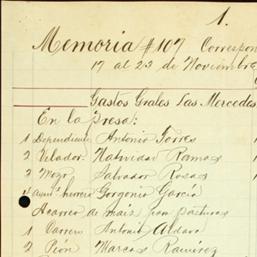 1.
Memoria #107 Correspon
17 al 23 de Noviembre
Gastos Grales Las Mercedes
En la presa:
1 Dependiente Antonio Torres
2 Velador Natividad Ramos
3 Mozo Salvador Rosas
herrero Gorgonio García
Acarreo de maiz con pasturas
1 Carrero Antonio Aldavo
2 Peón Marcos Ramírez